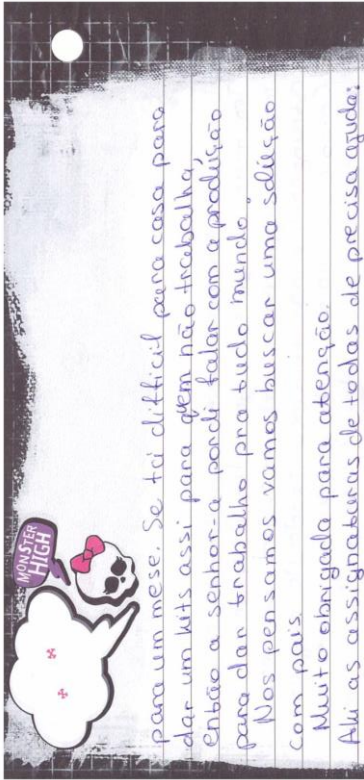 MONSTER
HIGH
para um mese. Se tai difficil para casa para
dar um kits assi para quem não trabalha,
então a senhor-a pordi falar com a produção
para dar trabalho pra tudo mundo.
Nos pensamos vamos buscar uma solução
com pais.
Muito obrigada para atenção.
Aki as assignaturas de todas de precisa ajuda: